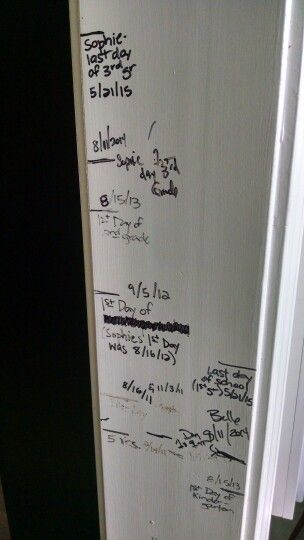 Sophie-
last day
of 3rd gr
5/21/15
8/11/2014
Sophie 1st
day 3rd
Grade
8/15/13
1st Day of
2nd grade
9/5/12
1st Day of
(Sophies' 1st Day
was 8/16/12)
Last day
of school
(1st gr) 5/21/15
8/16/11
11/3/11
Belle
8/11/2014
5 yrs.
8/15/13
1st Day of
Kinder-
garten